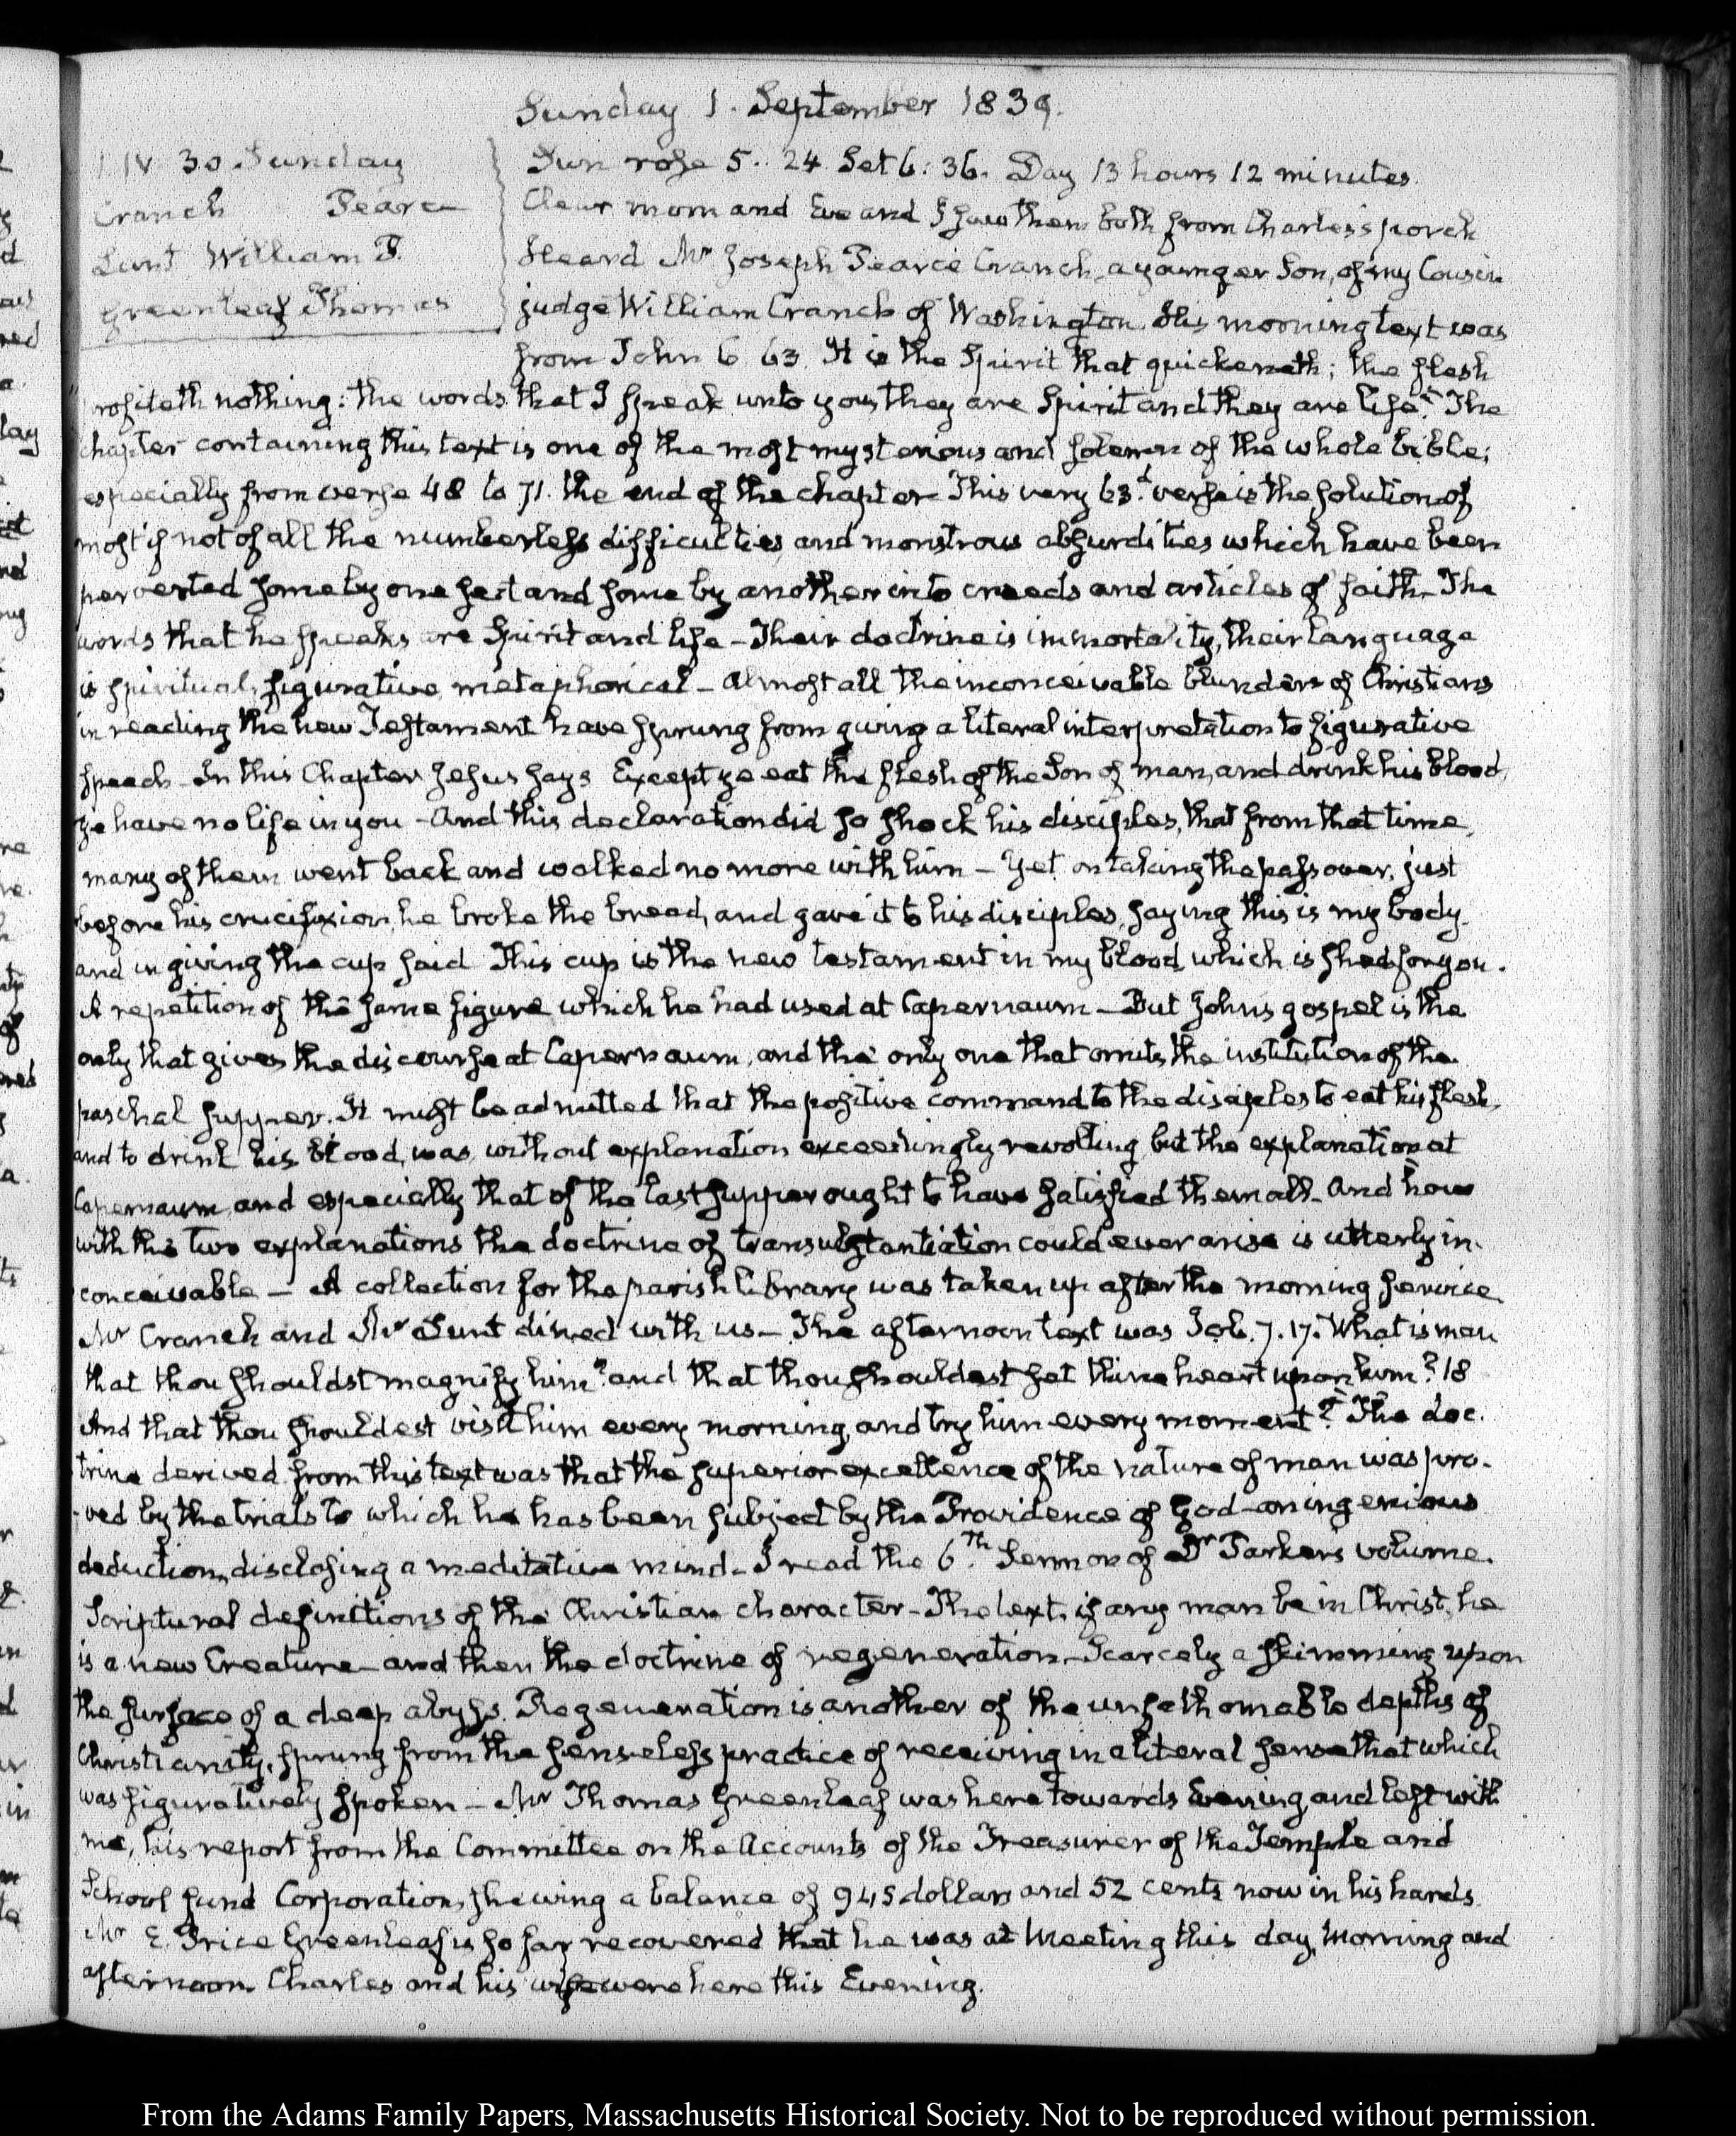 Sunday 1. September 1839.
IV. 30. Sunday
Cranch Pearce
Lunt William P.
Greenleaf Thomas
Sun rose 5.. 24 Set 6: 36. Day 13 hours 12 minutes.
Clear morn and Eve and I saw them both from Charles's porch
Heard Mr Joseph Pearce Cranch, a younger Son, of my Cousin
judge William Cranch of Washington. His morning text was
from John 6. 63. It is the Spirit that quickeneth; the flesh
profiteth nothing: the words that I speak unto you, they are Spirit and they are life." The
chapter containing this text is one of the most mysterious and solemn of the whole bible;
especially from verse 48 to 71. the end of the chapter This very 63.d verse is the solution of
most if not of all the numberless difficulties and monstrous absurdities which have been
perverted some by one sect and some by another into creeds and articles of faith_ The
words that he speaks are Spirit and life - Their doctrine is immortality, their language
is spiritual, figurative metaphorical - Almost all the inconceivable blunders of Christians
in reading the new Testament have sprung from giving a literal interpretation to figurative
speech - In this Chapter Jesus says Except ye eat the flesh of the Son of man, and drink his blood,
ye have no life in you - And this declaration did so shock his disciples, that from that time,
many of them went back and walked no more with him - Yet on taking the passover, just
before his crucifixion, he broke the bread, and gave it to his disciples, saying this is my body.
and in giving the cup said This cup is the new testament in my blood, which is shed for you.
A repetition of the same figure which he had used at Capernaum - But Johns gospel is the
only that gives the discourse at Capernaum, and the only one that omits the institution of the
paschal supper. It might be admitted that the positive command to the disciples to eat his flesh,
and to drink his blood, was, without explanation exceedingly revolting, but the explanation at
Capernaum, and especially that of the last supper ought to have satisfied them all - And how
with the two explanations the doctrine of transubstantiation could ever arise is utterly in-
conceivable - A collection for the parish library was taken up after the morning service
Mr Cranch and Mr Lunt dined with us - The afternoon text was Job. 7. 17. What is man
that thou shouldst magnify him? and that thou shouldest set thine heart upon him? 18
And that thou shouldest visit him every morning, and try him every moment?" The doc-
trine derived from this text was that the superior excellence of the nature of man was pro-
-ved by the trials to which he has been subject by the Providence of God - an ingenious
deduction, disclosing a meditative mind - I read the 6.Th Sermon of Dr Parkers volume.
Scriptural definitions of the Christian character - The text, if any man be in Christ, he
is a new Creature - and then the doctrine of regeneration - Scarcely a skimming upon
the surface of a deep abyss. Regeneration is another of the unfathomable depths of
Christianity, sprung from the senseless practice of receiving in a literal sense that which
was figuratively spoken - Mr Thomas Greenleaf was here towards Evening and left with
me, his report from the Committee on the Accounts of the Treasurer of the Temple and
School fund Corporation, shewing a balance of 945 dollars and 52 cents now in his hands.
Mr E. Price Greenleaf is so far recovered that he was at Meeting this day, Morning and
afternoon. Charles and his wife were here this Evening.
From the Adams Family Papers, Massachusetts Historical Society. Not to be reproduced without permission.